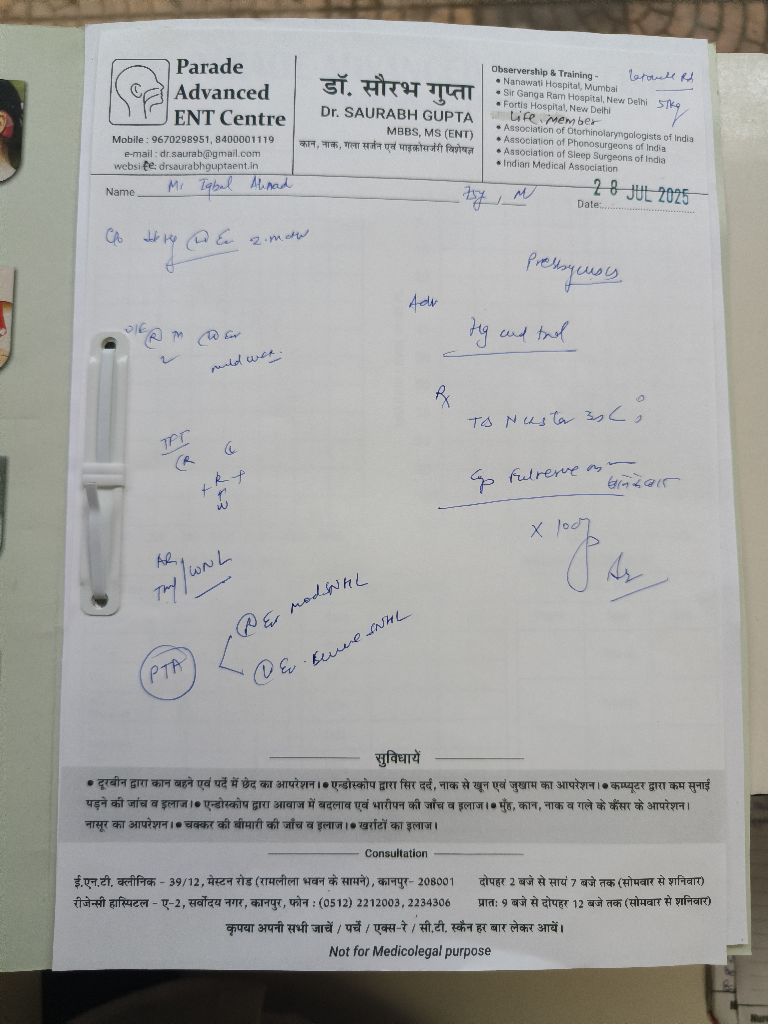 Parade
Advanced
ENT Centre
Mobile : 9670298951, 8400001119
e-mail : dr.saurab@gmail.com
website: drsaurabhguptaent.in
डॉ. सौरभ गुप्ता
Dr. SAURABH GUPTA
MBBS, MS (ENT)
कान, नाक, गला सर्जन एवं माइक्रोसर्जरी विशेषज्ञ
Observership & Training -
• Nanawati Hospital, Mumbai
• Sir Ganga Ram Hospital, New Delhi
• Fortis Hospital, New Delhi
Life member
• Association of Otorhinolaryngologists of India
• Association of Phonosurgeons of India
• Association of Sleep Surgeons of India
• Indian Medical Association
57kg
Name Mr Iqbal Ahmad
75y, M
Date: 28 JUL 2025
C/o Hg (L) Er
Presbycusis
Adv
Hg aid trial
O/E (R) (L) Er
mild wax.
Rx
TFT
(R (L
+ R +
W
X 10
TM / WNL
PTA
(R) Er mod SNHL
(L) Er severe SNHL
सुविधायें
• दूरबीन द्वारा कान बहने एवं पर्दे में छेद का आपरेशन। • एन्डोस्कोप द्वारा सिर दर्द, नाक से खून एवं जुखाम का आपरेशन। • कम्प्यूटर द्वारा कम सुनाई
पड़ने की जांच व इलाज। • एन्डोस्कोप द्वारा आवाज में बदलाव एवं भारीपन की जाँच व इलाज। • मुँह, कान, नाक व गले के कैंसर के आपरेशन।
नासूर का आपरेशन। • चक्कर की बीमारी की जाँच व इलाज। • खर्राटों का इलाज।
Consultation
ई.एन.टी. क्लीनिक - 39/12, मेस्टन रोड (रामलीला भवन के सामने), कानपुर- 208001 दोपहर 2 बजे से सायं 7 बजे तक (सोमवार से शनिवार)
रीजेन्सी हास्पिटल - ए-2, सर्वोदय नगर, कानपुर, फोन : (0512) 2212003, 2234306 प्रात: 9 बजे से दोपहर 12 बजे तक (सोमवार से शनिवार)
कृपया अपनी सभी जाचें / पर्चे / एक्स-रे / सी.टी. स्कैन हर बार लेकर आयें।
Not for Medicolegal purpose